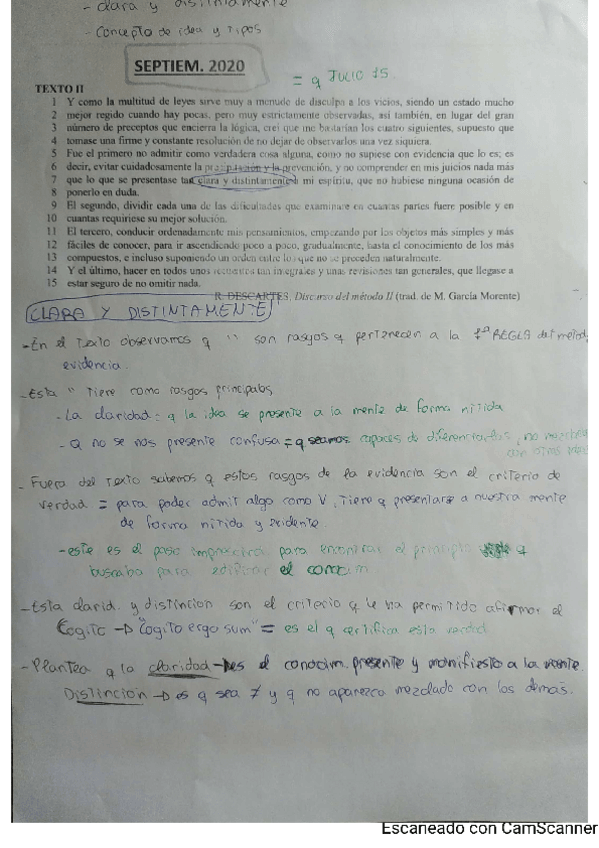 - clara y distintamente
- Concepto de idea y tipos
SEPTIEM. 2020
= q JULIO 15.
TEXTO II
1 Y como la multitud de leyes sirve muy a menudo de disculpa a los vicios, siendo un estado mucho
2 mejor regido cuando hay pocas, pero muy estrictamente observadas, así también, en lugar del gran
3 número de preceptos que encierra la lógica, creí que me bastarían los cuatro siguientes, supuesto que
4 tomase una firme y constante resolución de no dejar de observarlos una vez siquiera.
5 Fue el primero no admitir como verdadera cosa alguna, como no supiese con evidencia que lo es; es
6 decir, evitar cuidadosamente la precipitación y la prevención, y no comprender en mis juicios nada más
7 que lo que se presentase tan clara y distintamente a mi espíritu, que no hubiese ninguna ocasión de
8 ponerlo en duda.
9 El segundo, dividir cada una de las dificultades que examinare en cuantas partes fuere posible y en
10 cuantas requiriese su mejor solución.
11 El tercero, conducir ordenadamente mis pensamientos, empezando por los objetos más simples y más
12 fáciles de conocer, para ir ascendiendo poco a poco, gradualmente, hasta el conocimiento de los más
13 compuestos, e incluso suponiendo un orden entre los que no se preceden naturalmente.
14 Y el último, hacer en todos unos recuentos tan integrales y unas revisiones tan generales, que llegase a
15 estar seguro de no omitir nada.
R. DESCARTES, Discurso del método II (trad. de M. García Morente)
CLARA Y DISTINTAMENTE
- En el texto observamos q " son rasgos q pertenecen a la 1ª REGLA del metodo,
evidencia.
- Esta " tiene como rasgos principales
- La claridad = q la idea se presente a la mente de forma nitida
- Q no se nos presente confusa = q seamos capaces de diferenciarlas, no mezclarla
con otras
- Fuera del texto sabemos q estos rasgos de la evidencia son el criterio de
verdad = para poder admit algo como V, tiene q presentarse a nuestra mente
de forma nitida y evidente.
- este es el paso para encontrar el principio q
buscaba para edificar el conocim
- Esta clarid. y distincion son el criterio q le ha permitido afirmar el
Cogito -> "Cogito ergo sum" = es el q certifica esta verdad
- Plantea q la claridad -> es el conocim. presente y manifiesto a la mente.
Distinción -> es q sea ≠ y q no aparezca mezclado con los demas.
Escaneado con CamScanner